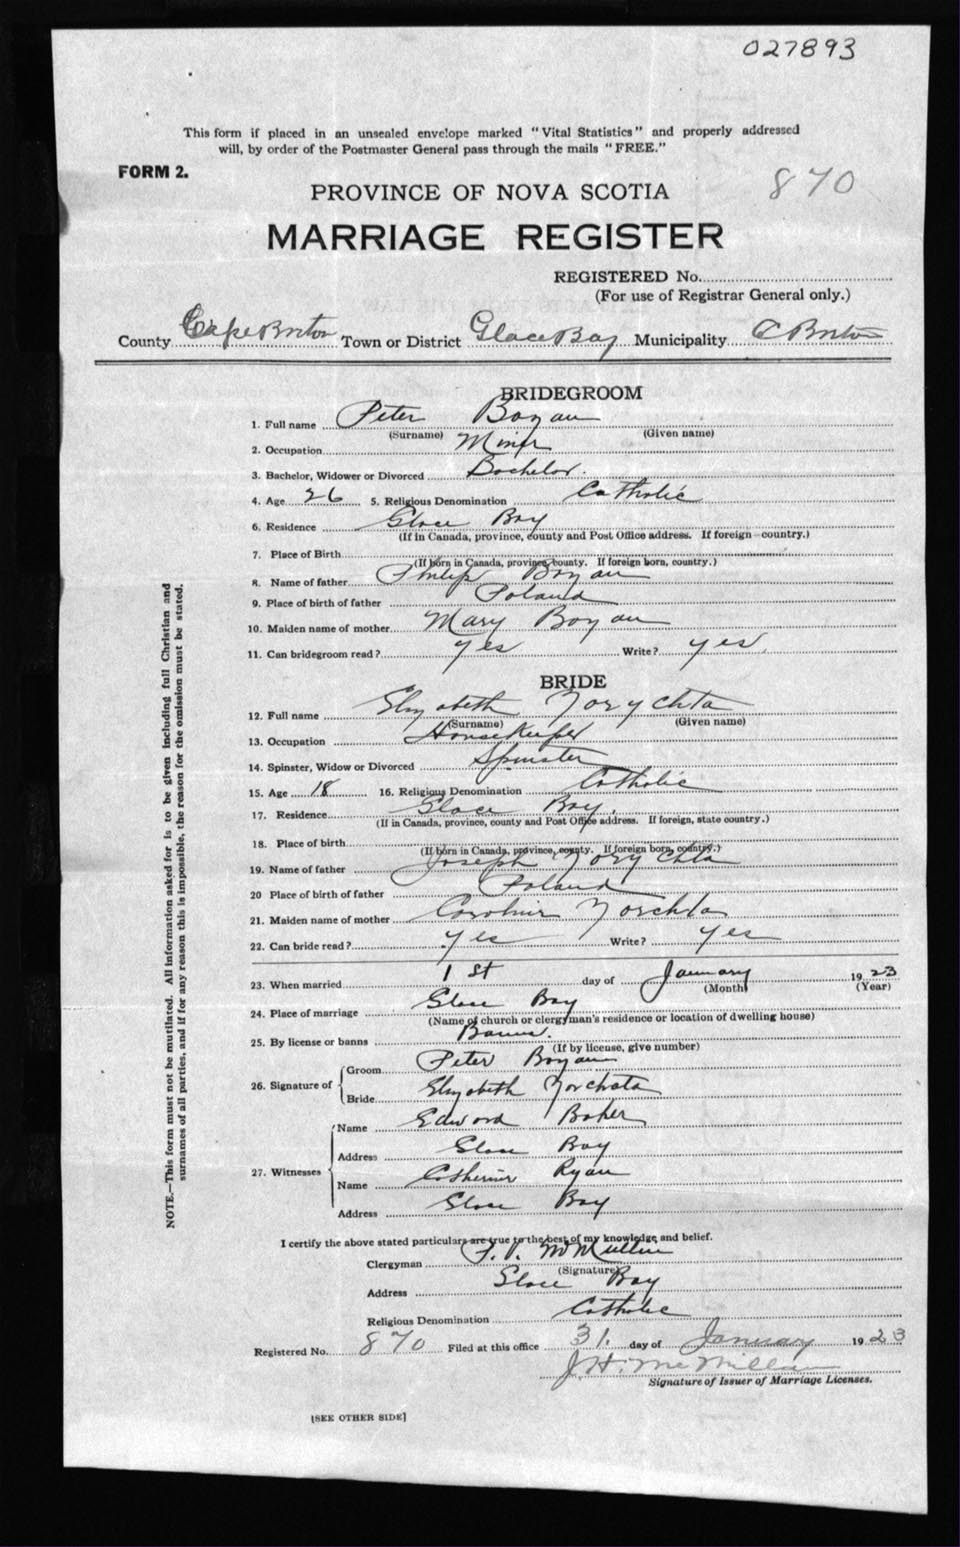 027893
This form if placed in an unsealed envelope marked "Vital Statistics" and properly addressed
will, by order of the Postmaster General pass through the mails "FREE."
FORM 2.
870
PROVINCE OF NOVA SCOTIA
MARRIAGE REGISTER
REGISTERED No.
(For use of Registrar General only.)
County Cape Breton Town or District Glace Bay Municipality C Breton
BRIDEGROOM
1. Full name Peter Bozan
(Surname) (Given name)
2. Occupation Miner
3. Bachelor, Widower or Divorced Bachelor.
4. Age 26 5. Religious Denomination Catholic
6. Residence Glace Bay
(If in Canada, province, county and Post Office address. If foreign—country.)
7. Place of Birth
(If born in Canada, province, county. If foreign born, country.)
8. Name of father Philip Bozan
9. Place of birth of father Poland
10. Maiden name of mother Mary Bozan
11. Can bridegroom read? yes Write? yes.
BRIDE
12. Full name Elizabeth
(Surname) (Given name)
13. Occupation HouseKeeper
14. Spinster, Widow or Divorced Spinster
15. Age 18 16. Religious Denomination Catholic
17. Residence Glace Bay.
(If in Canada, province, county and Post Office address. If foreign, state country.)
18. Place of birth
(If born in Canada, province, county. If foreign born, country.)
19. Name of father Joseph
20 Place of birth of father Poland
21. Maiden name of mother
22. Can bride read? yes Write? yes
23. When married 1st day of January 1923
(Month) (Year)
24. Place of marriage Glace Bay
(Name of church or clergyman's residence or location of dwelling house)
25. By license or banns Banns.
(If by license, give number)
26. Signature of Groom Peter Bozan
Bride Elizabeth
27. Witnesses Name Edward Baker
Address Glace Bay
Name Catherine Ryan
Address Glace Bay
I certify the above stated particulars are true to the best of my knowledge and belief.
Clergyman McMullin
(Signature)
Address Glace Bay
Religious Denomination Catholic
Registered No. 870 Filed at this office 31. day of January 1923
J. H. McMillan
Signature of Issuer of Marriage Licenses.
[SEE OTHER SIDE]
NOTE.—This form must not be mutilated. All information asked for is to be given including full Christian and
surnames of all parties, and if for any reason this is impossible, the reason for the omission must be stated.